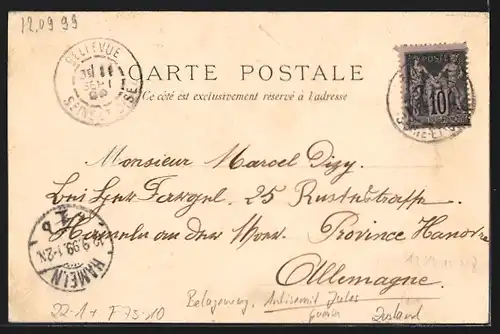 12.09.99
BELLEVUE
11
SEPT
99
SEINE ET OISE
CARTE POSTALE
Ce côté est exclusivement réservé à l'adresse
POSTE
10
Monsieur Marcel Dizy.
bei Herr 25
Hameln an der Weser. Province Hanovre
Allemagne.
HAMELN
9.99.1-2N.
22-1+ F 75-10
Antisemit Jules
Guérin